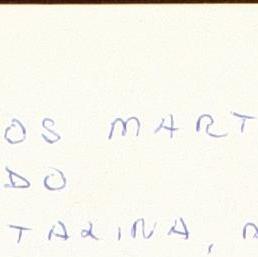 OS MART
DO
TARINA,